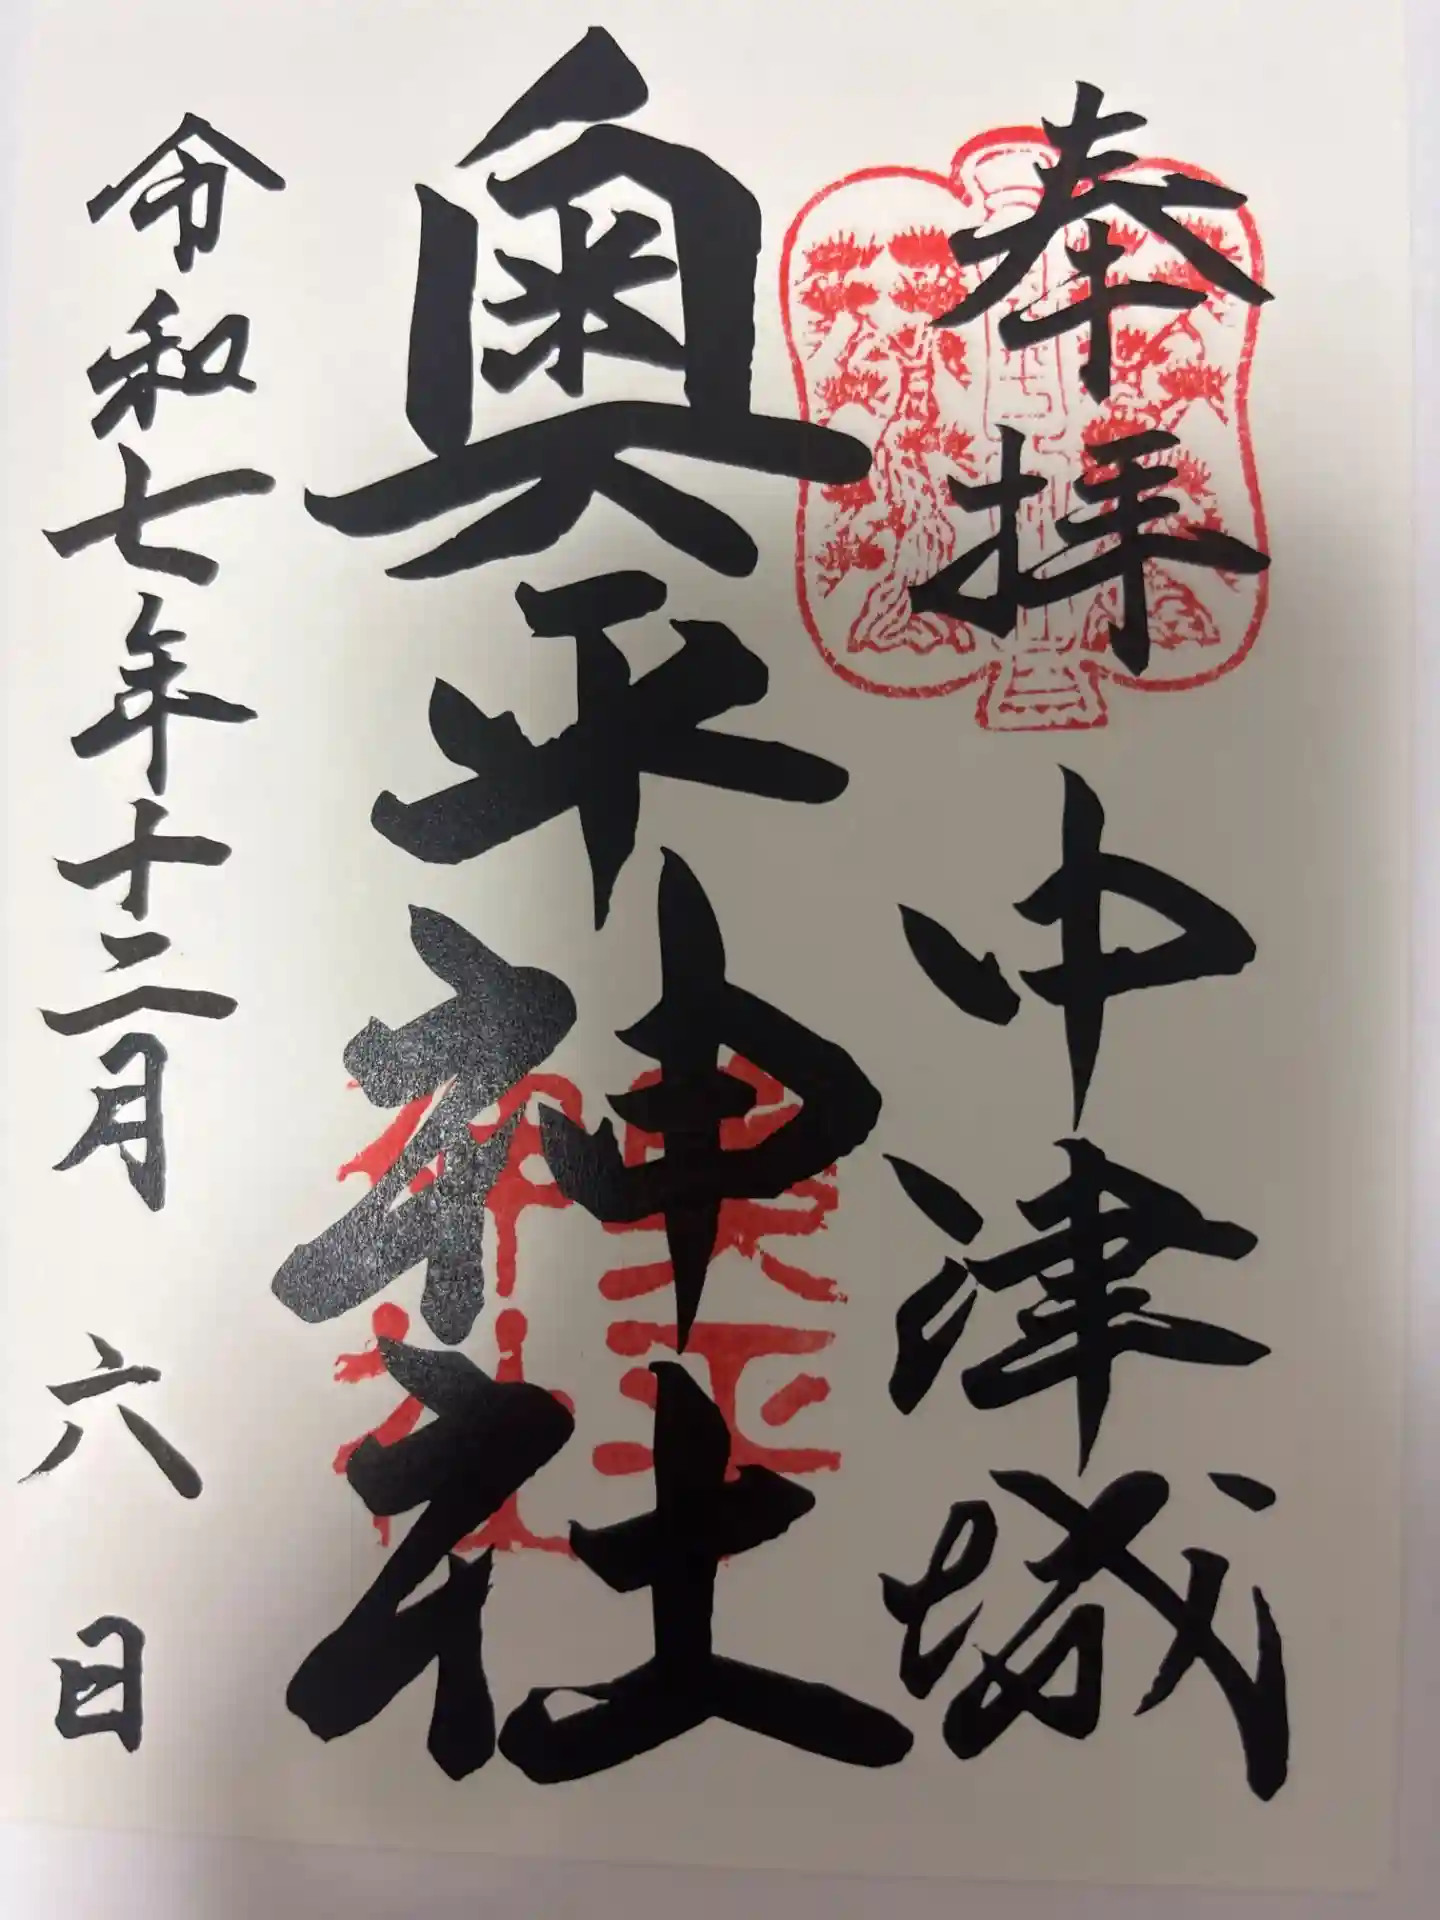 奉拝 中津城
奥平神社
令和七年十二月 六 日
奥平
神社